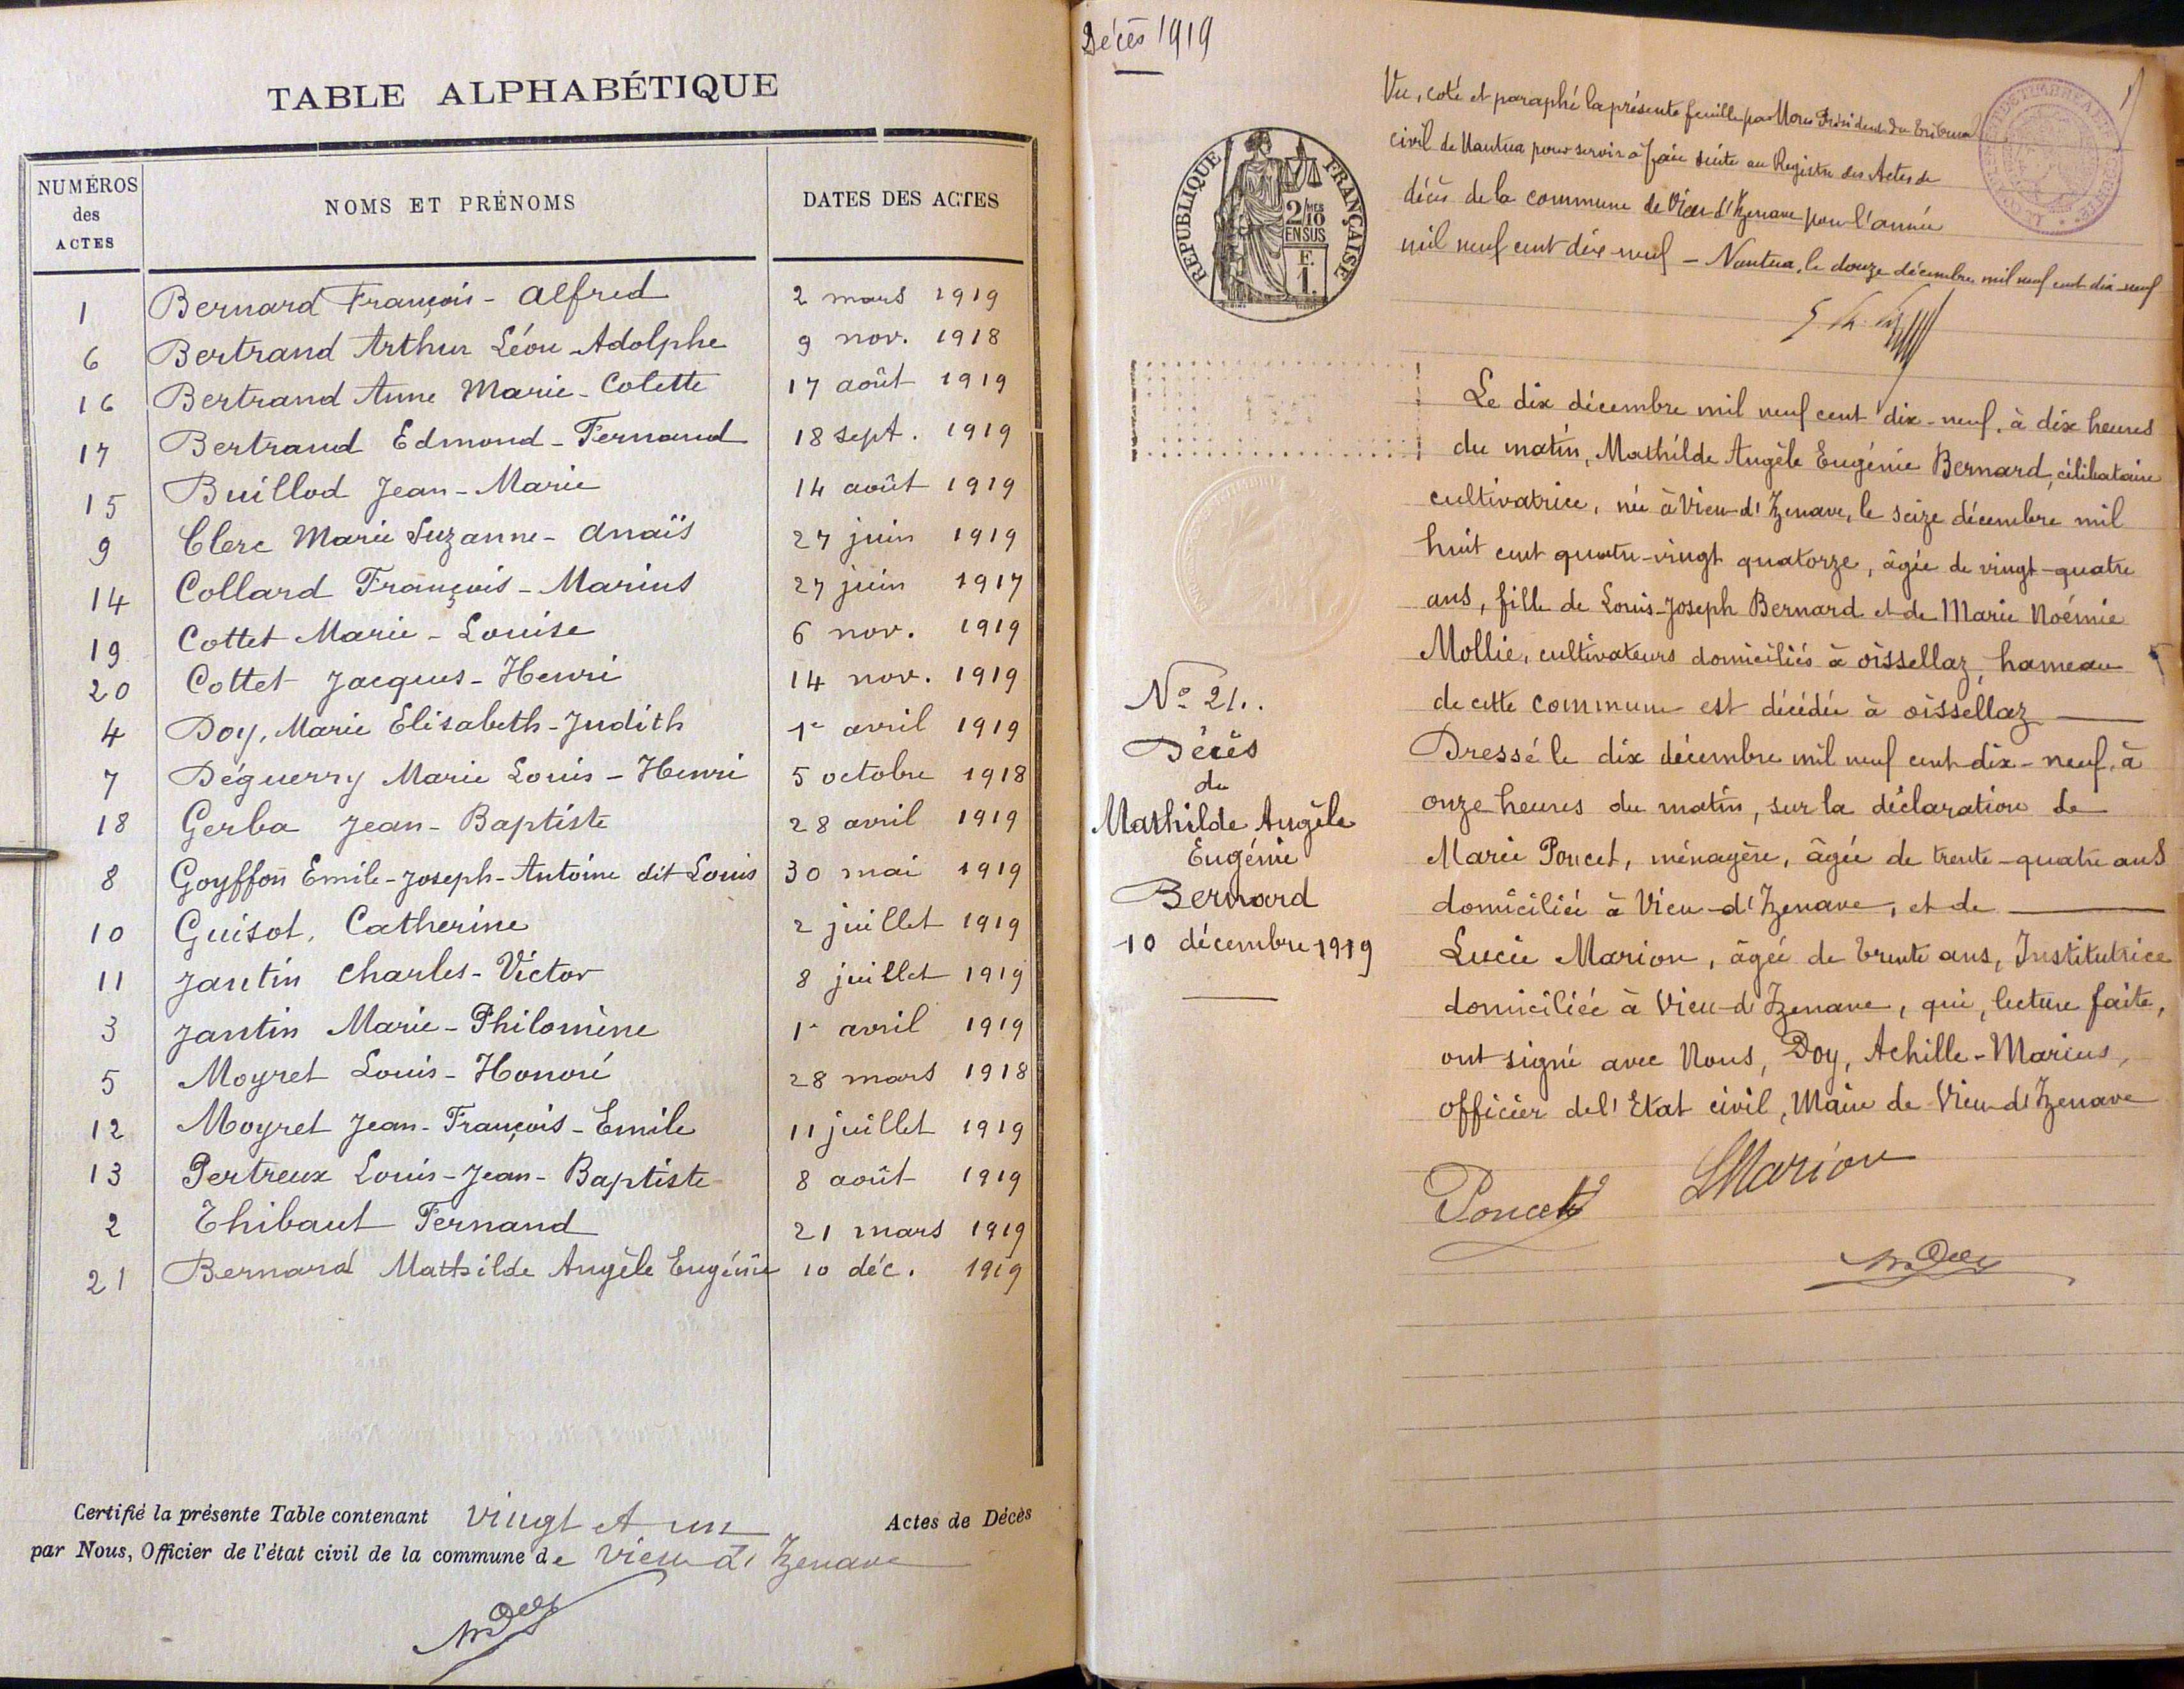 TABLE ALPHABÉTIQUE
NUMÉROS des ACTES
NOMS ET PRÉNOMS
DATES DES ACTES
1 Bernard François - Alfred 2 mars 1919
6 Bertrand Arthur Léon - Adolphe 9 nov. 1918
16 Bertrand Anne Marie - Colette 17 août 1919
17 Bertrand Edmond - Fernand 18 sept. 1919
15 Buillod Jean - Marie 14 août 1919
9 Clerc Marie Suzanne - Anaïs 27 juin 1919
14 Collard François - Marius 27 juin 1917
19 Cottet Marie - Louise 6 nov. 1919
20 Cottet Jacques - Henri 14 nov. 1919
4 Doy, Marie Elisabeth - Judith 1er avril 1919
7 Déguerry Marie Louis - Henri 5 octobre 1918
18 Gerba Jean - Baptiste 28 avril 1919
8 Goyffon Emile - Joseph - Antoine dit Louis 30 mai 1919
10 Guisot, Catherine 2 juillet 1919
11 Jantin Charles - Victor 8 juillet 1919
3 Jantin Marie - Philomène 1er avril 1919
5 Moyret Louis - Honoré 28 mars 1918
12 Moyret Jean - François - Emile 11 juillet 1919
13 Pertreux Louis - Jean - Baptiste 8 août 1919
2 Thibaut Fernand 21 mars 1919
21 Bernard Mathilde Angèle Eugénie 10 déc. 1919
Certifié la présente Table contenant vingt et un Actes de Décès
par Nous, Officier de l'état civil de la commune de Vieu-d'Izenave
Décès 1919
Vu, coté et paraphé la présente feuille par Nous Président du Tribunal
civil de Nantua pour servir à faire suite au Registre des Actes de
décès de la commune de Vieu-d'Izenave pour l'année
mil neuf cent dix neuf - Nantua, le douze décembre mil neuf cent dix-neuf
RÉPUBLIQUE FRANÇAISE
2/10 MES
EN SUS
F.
1.
Le dix décembre mil neuf cent dix-neuf, à dix heures
du matin, Mathilde Angèle Eugénie Bernard, célibataire
cultivatrice, née à Vieu-d'Izenave, le seize décembre mil
huit cent quatre-vingt quatorze, âgée de vingt-quatre
ans, fille de Louis-Joseph Bernard et de Marie Noémie
Mollie, cultivateurs domiciliés à oissellaz, hameau
de cette commune est décédée à oissellaz
Dressé le dix décembre mil neuf cent dix-neuf, à
onze heures du matin, sur la déclaration de
Marie Poncet, ménagère, âgée de trente-quatre ans
domiciliée à Vieu-d'Izenave, et de
Lucie Marion, âgée de trente ans, Institutrice
domiciliée à Vieu-d'Izenave, qui, lecture faite,
ont signé avec Nous, Doy, Achille-Marius,
officier de l'Etat civil, Maire de Vieu-d'Izenave
No 21.
Décès
de
Mathilde Angèle
Eugénie
Bernard
10 décembre 1919
Poncet
LMarion